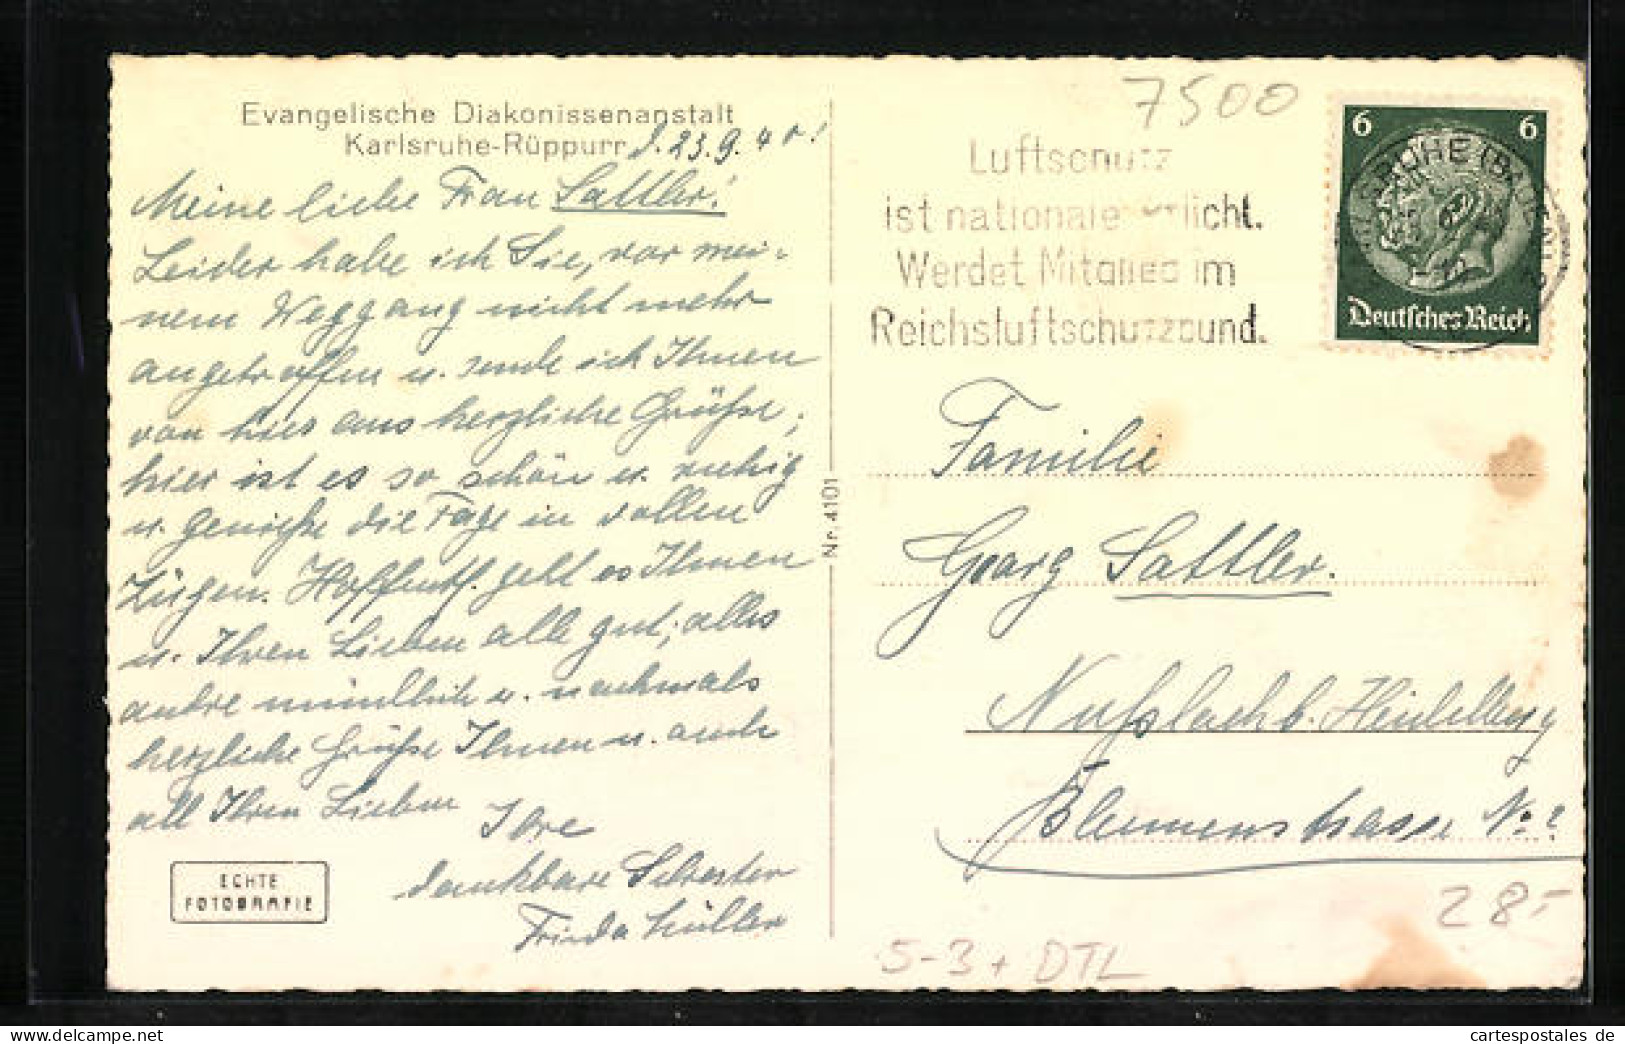 Evangelische Diakonissenanstalt
Karlsruhe-Rüppurr, d. 23.9.40!
Meine liebe Frau Sattler!
Leider habe ich Sie, vor mei-
nem Weggang nicht mehr
angetroffen u. sende ich Ihnen
von hier aus herzliche Grüße;
hier ist es so schön u. ruhig
u. genieße die Tage in vollen
Zügen. Hoffentl. geht es Ihnen
u. Ihren Lieben alle gut; alles
andre mündlich u. nochmals
herzliche Grüße Ihnen u. auch
all Ihren Lieben
Ihre
dankbare
Frieda Müller
ECHTE
FOTOGRAFIE
Nr. 4101
7500
Luftschutz
ist nationale Pflicht.
Werdet Mitglied im
Reichsluftschutzbund.
6 6
KARLSRUHE (BADEN)
Deutsches Reich
Familie
Georg Sattler.
Nußloch b. Heidelberg
Blumenstrasse No 2
28.-
5-3 + DTL
www.delcampe.net
cartespostales de